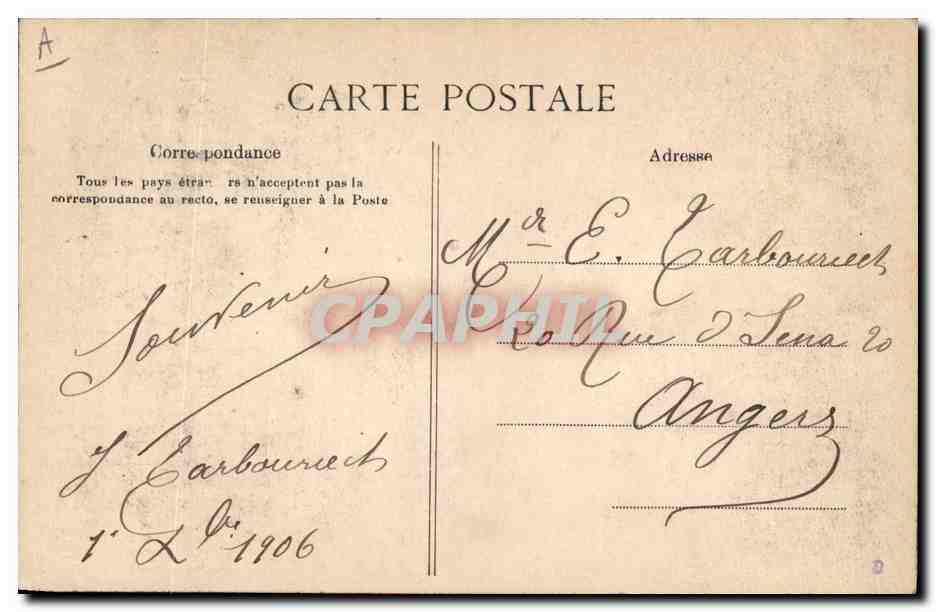 A
CARTE POSTALE
Correspondance
Tous les pays étrangers n'acceptent pas la
correspondance au recto, se renseigner à la Poste
Souvenir
J Tarbouriech
1er Xbre 1906
Adresse
Mdr E. Tarbouriech
20 Rue d'Iena 20
Angers
CPAPHIL